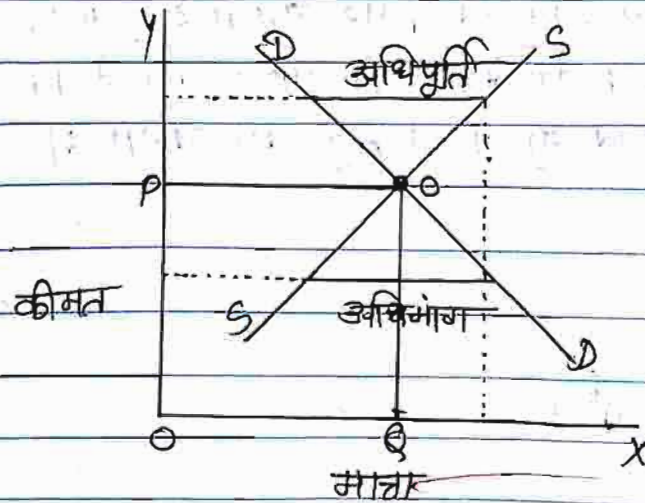 Y
D
S
अधिपूर्ति
P
O
कीमत
S
अधिमांग
D
O
Q
X
मात्रा